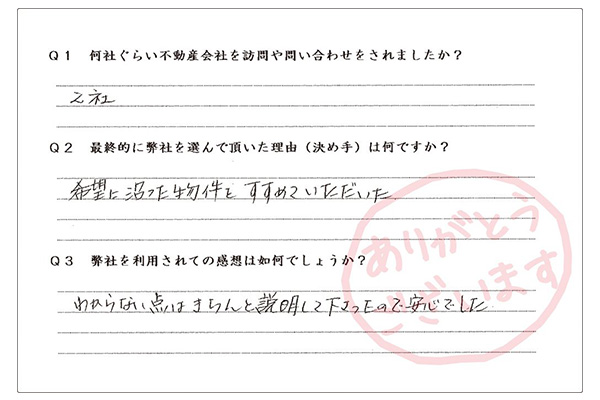 Q1 何社ぐらい不動産会社を訪問や問い合わせをされましたか？
2社
Q2 最終的に弊社を選んで頂いた理由（決め手）は何ですか？
希望に沿った物件を すすめていただいた
Q3 弊社を利用されての感想は如何でしょうか？
わからない点はきちんと説明して下さったので安心でした
ありがとう
ございます